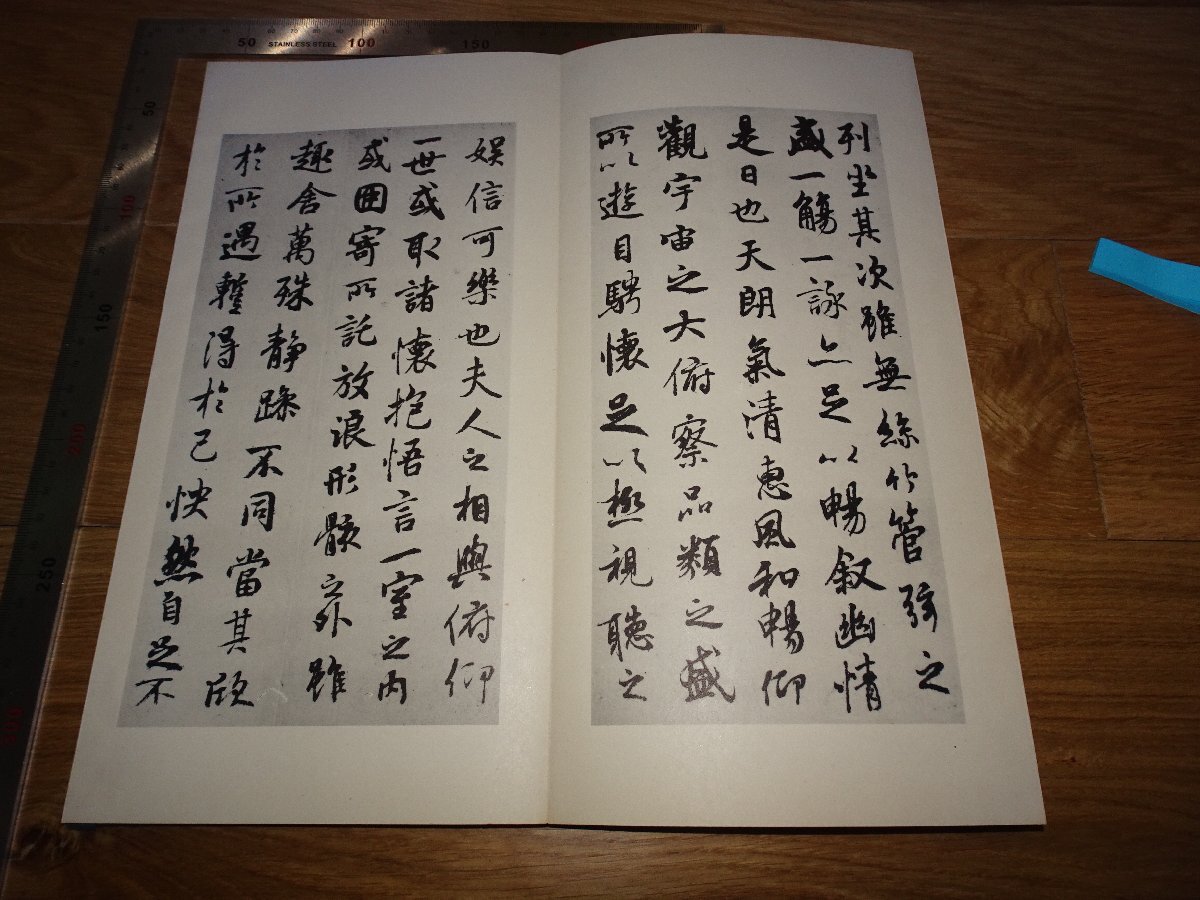 列坐其次雖無絲竹管弦之
盛一觴一詠亦足以暢叙幽情
是日也天朗氣清惠風和暢仰
觀宇宙之大俯察品類之盛
所以遊目騁懷足以極視聽之
娛信可樂也夫人之相與俯仰
一世或取諸懷抱悟言一室之內
或因寄所託放浪形骸之外雖
趣舍萬殊靜躁不同當其欣
於所遇蹔得於己怏然自足不
50 STAINLESS STEEL 100 150
50
100
150
200
250
300